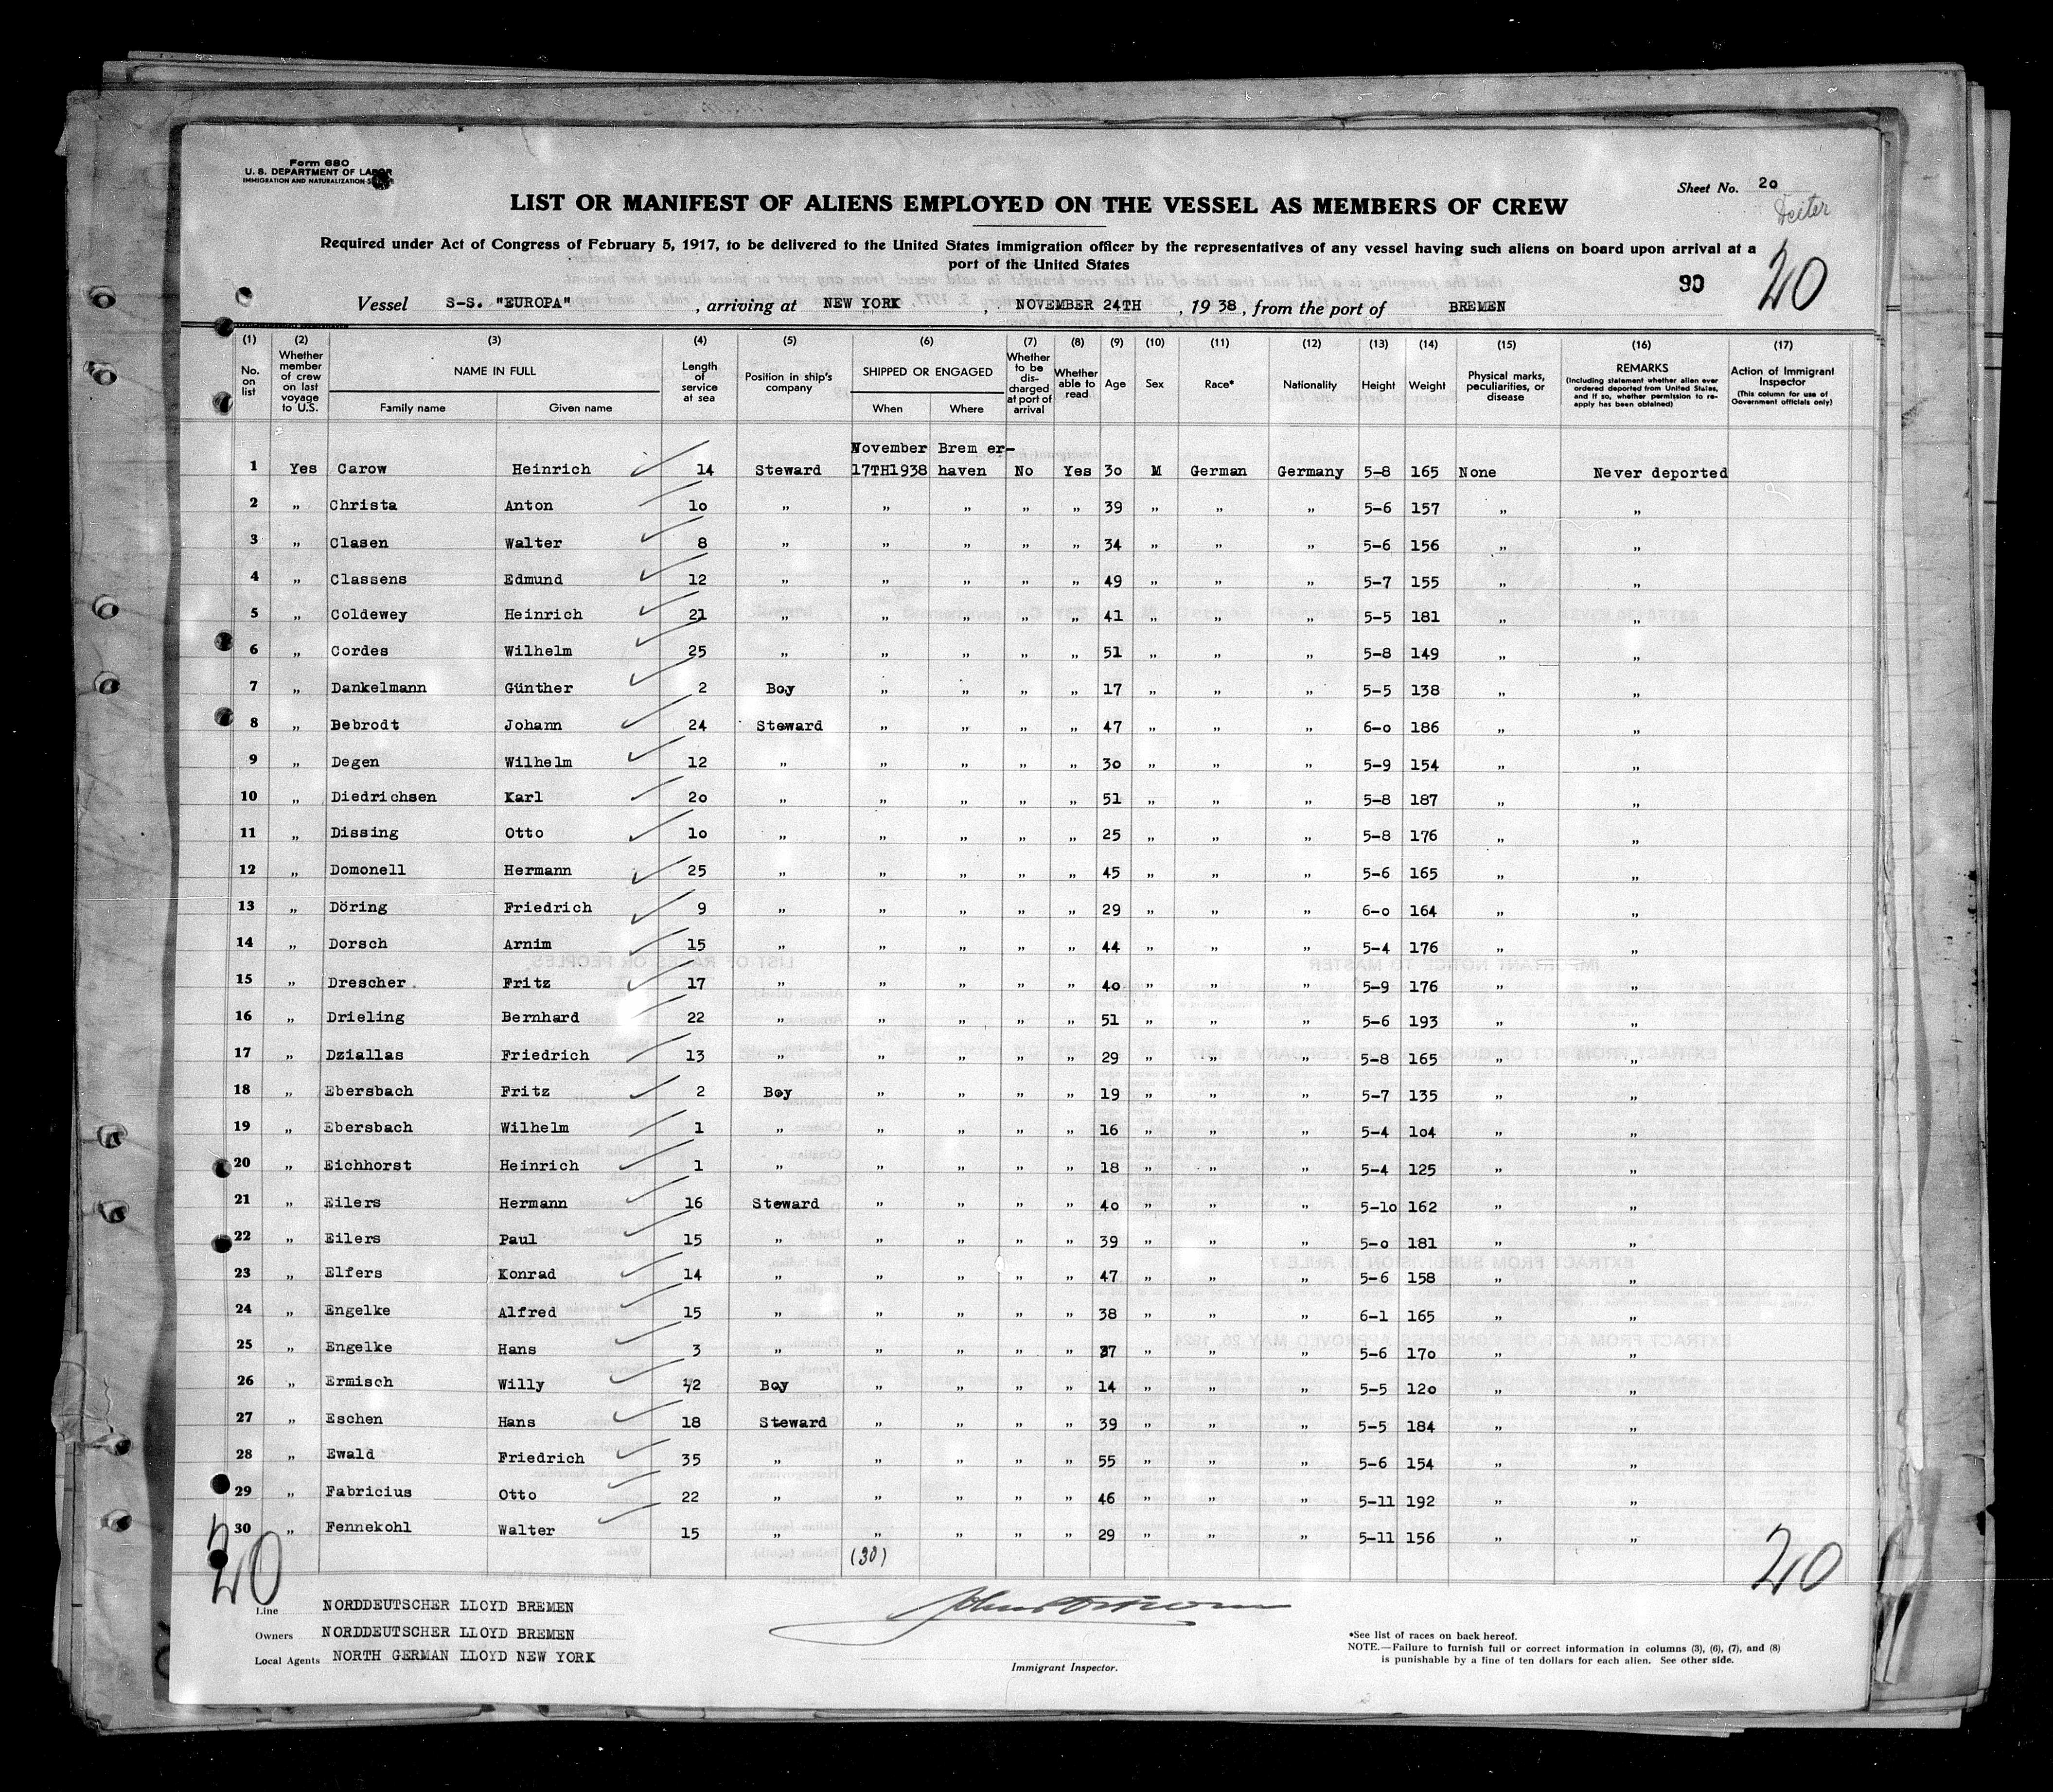 Form 680
U. S. DEPARTMENT OF LABOR
IMMIGRATION AND NATURALIZATION
Sheet No. 20
Deiter
LIST OR MANIFEST OF ALIENS EMPLOYED ON THE VESSEL AS MEMBERS OF CREW
Required under Act of Congress of February 5, 1917, to be delivered to the United States immigration officer by the representatives of any vessel having such aliens on board upon arrival at a
port of the United States
90 20
Vessel S-S. "EUROPA" , arriving at NEW YORK , NOVEMBER 24TH , 19 38 , from the port of BREMEN
(1) (2) (3) (4) (5) (6) (7) (8) (9) (10) (11) (12) (13) (14) (15) (16) (17)
No. on list
Whether member of crew on last voyage to U.S.
NAME IN FULL
Family name Given name
Length of service at sea
Position in ship's company
SHIPPED OR ENGAGED
When Where
Whether to be discharged at port of arrival
Whether able to read
Age
Sex
Race*
Nationality
Height
Weight
Physical marks, peculiarities, or disease
REMARKS
(Including statement whether alien ever ordered deported from United States, and if so, whether permission to re-apply has been obtained)
Action of Immigrant Inspector
(This column for use of Government officials only)
November Brem er-
1 Yes Carow Heinrich 14 Steward 17TH1938 haven No Yes 30 M German Germany 5-8 165 None Never deported
2 „ Christa Anton 10 „ „ „ „ „ 39 „ „ „ 5-6 157 „ „
3 „ Clasen Walter 8 „ „ „ „ „ 34 „ „ „ 5-6 156 „ „
4 „ Classens Edmund 12 „ „ „ „ „ 49 „ „ „ 5-7 155 „ „
5 „ Coldewey Heinrich 21 „ „ „ „ „ 41 „ „ „ 5-5 181 „ „
6 „ Cordes Wilhelm 25 „ „ „ „ „ 51 „ „ „ 5-8 149 „ „
7 „ Dankelmann Günther 2 Boy „ „ „ „ 17 „ „ „ 5-5 138 „ „
8 „ Bebrodt Johann 24 Steward „ „ „ „ 47 „ „ „ 6-0 186 „ „
9 „ Degen Wilhelm 12 „ „ „ „ „ 30 „ „ „ 5-9 154 „ „
10 „ Diedrichsen Karl 20 „ „ „ „ „ 51 „ „ „ 5-8 187 „ „
11 „ Dissing Otto 10 „ „ „ „ „ 25 „ „ „ 5-8 176 „ „
12 „ Domonell Hermann 25 „ „ „ „ „ 45 „ „ „ 5-6 165 „ „
13 „ Döring Friedrich 9 „ „ „ „ „ 29 „ „ „ 6-0 164 „ „
14 „ Dorsch Arnim 15 „ „ „ „ „ 44 „ „ „ 5-4 176 „ „
15 „ Drescher Fritz 17 „ „ „ „ „ 40 „ „ „ 5-9 176 „ „
16 „ Drieling Bernhard 22 „ „ „ „ „ 51 „ „ „ 5-6 193 „ „
17 „ Dziallas Friedrich 13 „ „ „ „ „ 29 „ „ „ 5-8 165 „ „
18 „ Ebersbach Fritz 2 Boy „ „ „ „ 19 „ „ „ 5-7 135 „ „
19 „ Ebersbach Wilhelm 1 „ „ „ „ „ 16 „ „ „ 5-4 104 „ „
20 „ Eichhorst Heinrich 1 „ „ „ „ „ 18 „ „ „ 5-4 125 „ „
21 „ Eilers Hermann 16 Steward „ „ „ „ 40 „ „ „ 5-10 162 „ „
22 „ Eilers Paul 15 „ „ „ „ „ 39 „ „ „ 5-0 181 „ „
23 „ Elfers Konrad 14 „ „ „ „ „ 47 „ „ „ 5-6 158 „ „
24 „ Engelke Alfred 15 „ „ „ „ „ 38 „ „ „ 6-1 165 „ „
25 „ Engelke Hans 3 „ „ „ „ „ „ „ „ 5-6 170 „ „
26 „ Ermisch Willy 1/2 Boy „ „ „ „ 14 „ „ „ 5-5 120 „ „
27 „ Eschen Hans 18 Steward „ „ „ „ 39 „ „ „ 5-5 184 „ „
28 „ Ewald Friedrich 35 „ „ „ „ „ 55 „ „ „ 5-6 154 „ „
29 „ Fabricius Otto 22 „ „ „ „ „ 46 „ „ „ 5-11 192 „ „
30 „ Fennekohl Walter 15 „ „ „ „ „ 29 „ „ „ 5-11 156 „ „
(30)
20 20
Line NORDDEUTSCHER LLOYD BREMEN
Owners NORDDEUTSCHER LLOYD BREMEN
Local Agents NORTH GERMAN LLOYD NEW YORK
Immigrant Inspector.
*See list of races on back hereof.
NOTE.—Failure to furnish full or correct information in columns (3), (6), (7), and (8)
is punishable by a fine of ten dollars for each alien. See other side.